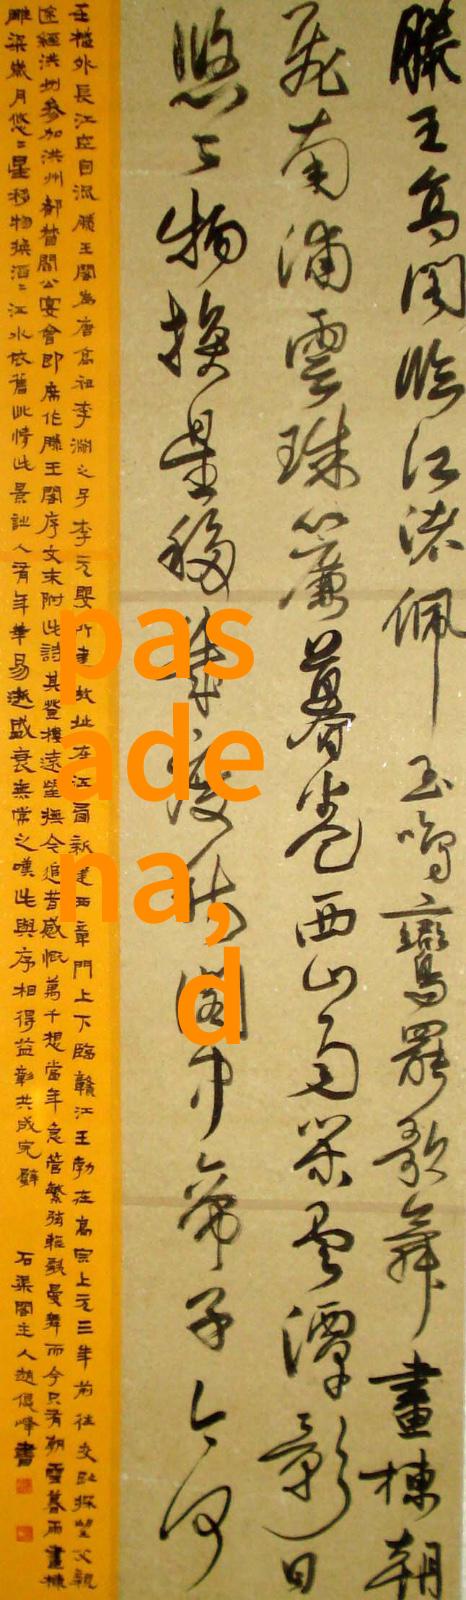 滕王高閣臨江渚佩玉鳴鸞罷歌舞畫棟朝
飛南浦雲珠簾暮卷西山雨閑雲潭影日
悠〻物換星移幾度秋閣中帝子今何
在檻外長江空自流滕王閣為唐高祖李淵之子李元嬰所建故址在江新建西章門上下臨贛江王勃在高宗上元三年前往交趾探望父親
途經洪州參加洪州都督閻公宴會即席作滕王閣序文末附此詩其登樓遠望撫今追昔感慨萬千想當年急管繁弦輕歌曼舞而今只有朝雲暮雨畫棟
雕梁歲月悠〻星移物換〻江水依舊此情此景人有年華易逝盛衰無常之嘆此與序相得益彰共成完璧
石渠閣主人趙俊峰書
pas
ade
na,
d